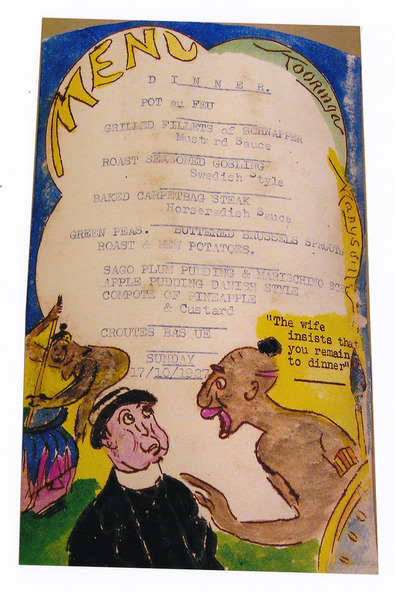 MENU
Kooringa
D I N N E R.
POT au FEU
GRILLED FILLETS of SCHNAPPER
Must rd Sauce
ROAST SEASONED GOSLING
Swedish Style
BAKED CARPETBAG STEAK
Horseradish Sauce
GREEN PEAS. BUTTERED BRUSSELS SPROUTS
ROAST & NEW POTATOES.
SAGO PLUM PUDDING & MARISCHINO
APPLE PUDDING DANISH STYLE
COMPOTE OF PINEAPPLE
& Custard
CROUTES BAS UE
SUNDAY
17/10/1937
"The wife
insists tha
you remain
to dinner"